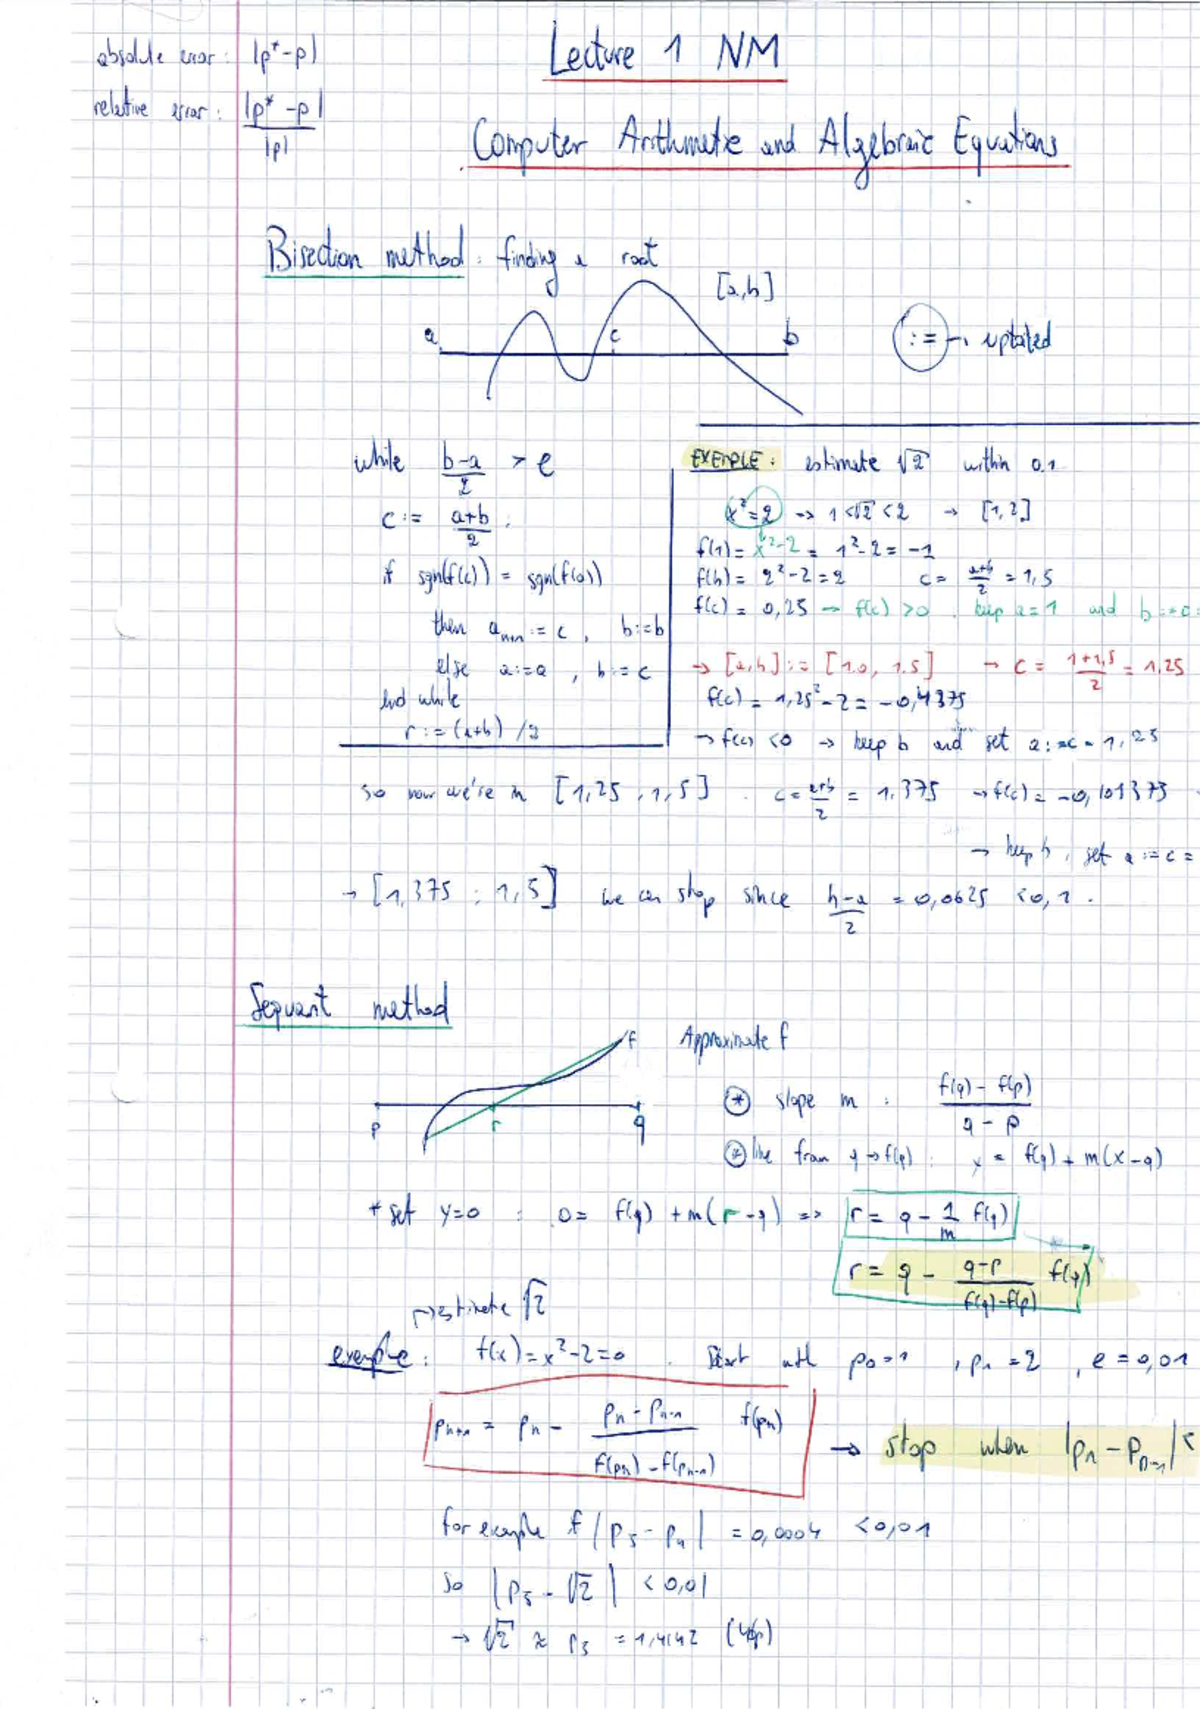 Lecture 1 NM
absolute error : |p* - p|
relative error : |p* - p| / |p|
Computer Arithmetic and Algebraic Equations
Bisection method : finding a root
[a,b]
a c b
:= → uptated
while (b-a)/2 > e
c := (a+b)/2 ;
if sgn(f(c)) = sgn(f(a))
then a := c , b:=b
else a:=a , b:=c
end while
r := (a+b) /2
EXEMPLE : estimate √2 within 0.1
x² = 2 → 1 <√2 <2 → [1,2]
f(1) = x²-2 = 1²-2 = -1
f(b) = 2²-2 = 2 c = (a+b)/2 = 1,5
f(c) = 0,25 → f(c) >0 . keep a = 1 and b := c =
→ [a,b] := [1.0, 1.5] → c = (1+1,5)/2 = 1,25
f(c) = 1,25² - 2 = -0,4375
→ f(c) <0 → keep b and set a := c = 1,25
so now we're in [1,25 , 1,5] . c = (a+b)/2 = 1,375 → f(c) = -0,109375
→ keep b , set a := c =
→ [1,375 ; 1,5] we can stop since (b-a)/2 = 0,0625 <0,1 .
Sequant method
f
p r q
Approximate f
* slope m : (f(q) - f(p))/(q - p)
* line from q → f(q) : y = f(q) + m(x-q)
* set y=0 : 0 = f(q) + m(r-q) => r = q - 1/m f(q)
r = q - (q-p)/(f(q)-f(p)) f(q)
→ estimate √2
exemple : f(x) = x²-2=0 . Start with p₀=1 , p₁ =2 , e = 0,01
pₙ₊₁ = pₙ - (pₙ - pₙ₋₁)/(f(pₙ) - f(pₙ₋₁)) f(pₙ)
→ stop when |pₙ - pₙ₋₁| <
for example if |p₅ - p₄| = 0,0004 <0,01
so |p₅ - √2| < 0,01
→ √2 ≈ p₅ = 1,4142 (4dp)